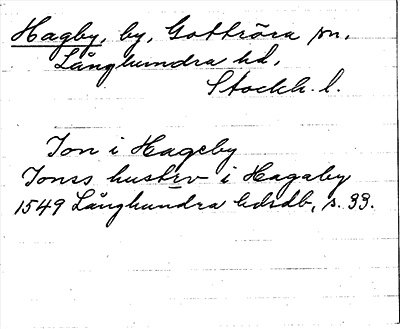 Hagby, by, Gottröra sn,
Långhundra hd,
Stockh. l.
Jon i Hageby
Jonss hustrv i Hagaby
1549 Långhundra hdsdb, s. 33.